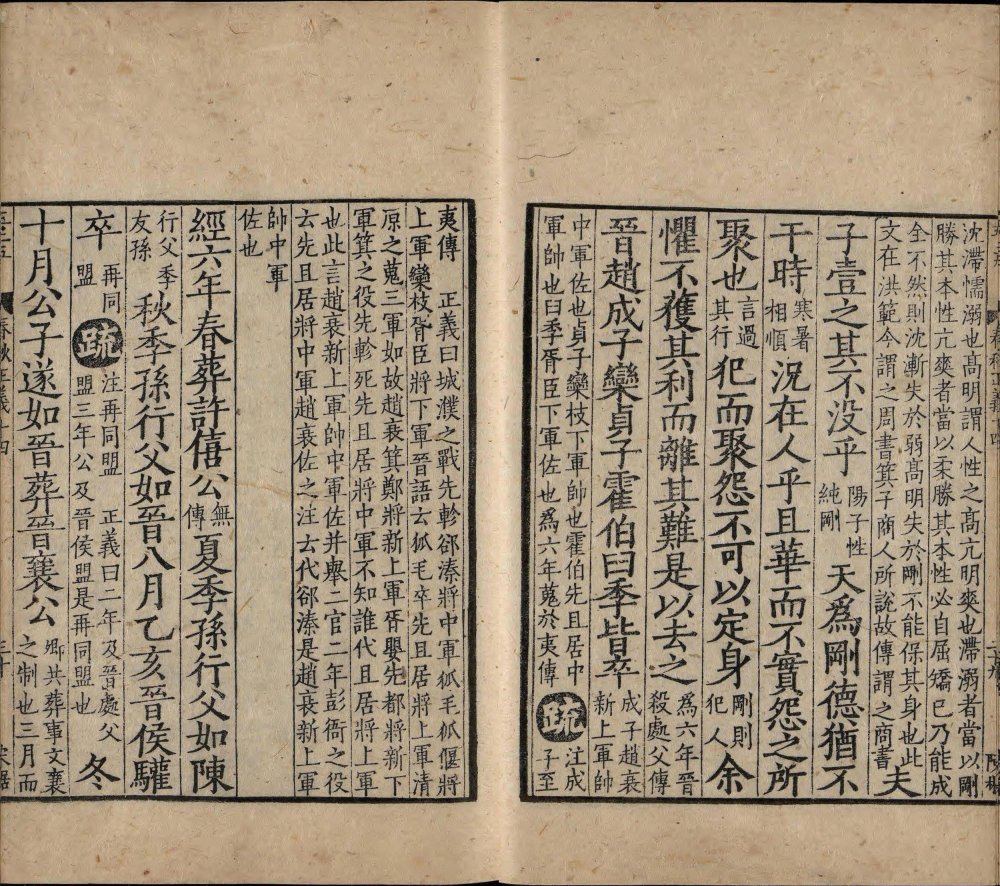 沈滯懦溺也高明謂人性之高亢明爽也滯溺者當以剛
勝其本性亢爽者當以柔勝其本性必自屈矯已乃能成
全不然則沈漸失於弱髙明失於剛不能保其身也此
文在洪範今謂之周書箕子商人所說故傳謂之商書夫
子壹之其不没乎 陽子性純剛 天爲剛德猶不
干時 寒暑相順 况在人乎且華而不實怨之所
聚也 言過其行 犯而聚怨不可以定身 剛則犯人 余
懼不獲其利而離其難是以去之 爲六年晉殺處父傳
晉趙成子欒貞子霍伯臼季皆卒 成子趙衰新上軍帥
中軍佐也貞子欒枝下軍帥也霍伯先且居中
軍帥也臼季胥臣下軍佐也爲六年蒐於夷傳 疏 注成子至
夷傳 正義曰城濮之戰先軫郤溱將中軍狐毛狐偃將
上軍欒枝胥臣將下軍晉語云狐毛卒先且居將上軍清
原之蒐三軍如故趙衰箕鄭將新上軍胥嬰先都將新下
軍箕之役先軫死先且居將中軍不知誰代且居將上軍
也此言趙衰新上軍帥中軍佐并舉二官二年彭衙之役
云先且居將中軍趙衰佐之注云代郤溱是趙衰新上軍
帥中軍
佐也
經六年春葬許僖公 無傳 夏季孫行父如陳
行父季友孫 秋季孫行父如晉八月乙亥晉侯驩
卒 再同盟 疏 注再同盟 正義曰二年及晉處父
盟三年公及晉侯盟是再同盟也 冬
十月公子遂如晉葬晉襄公 卿共葬事文襄之制也三月而
春秋正義十四 三十